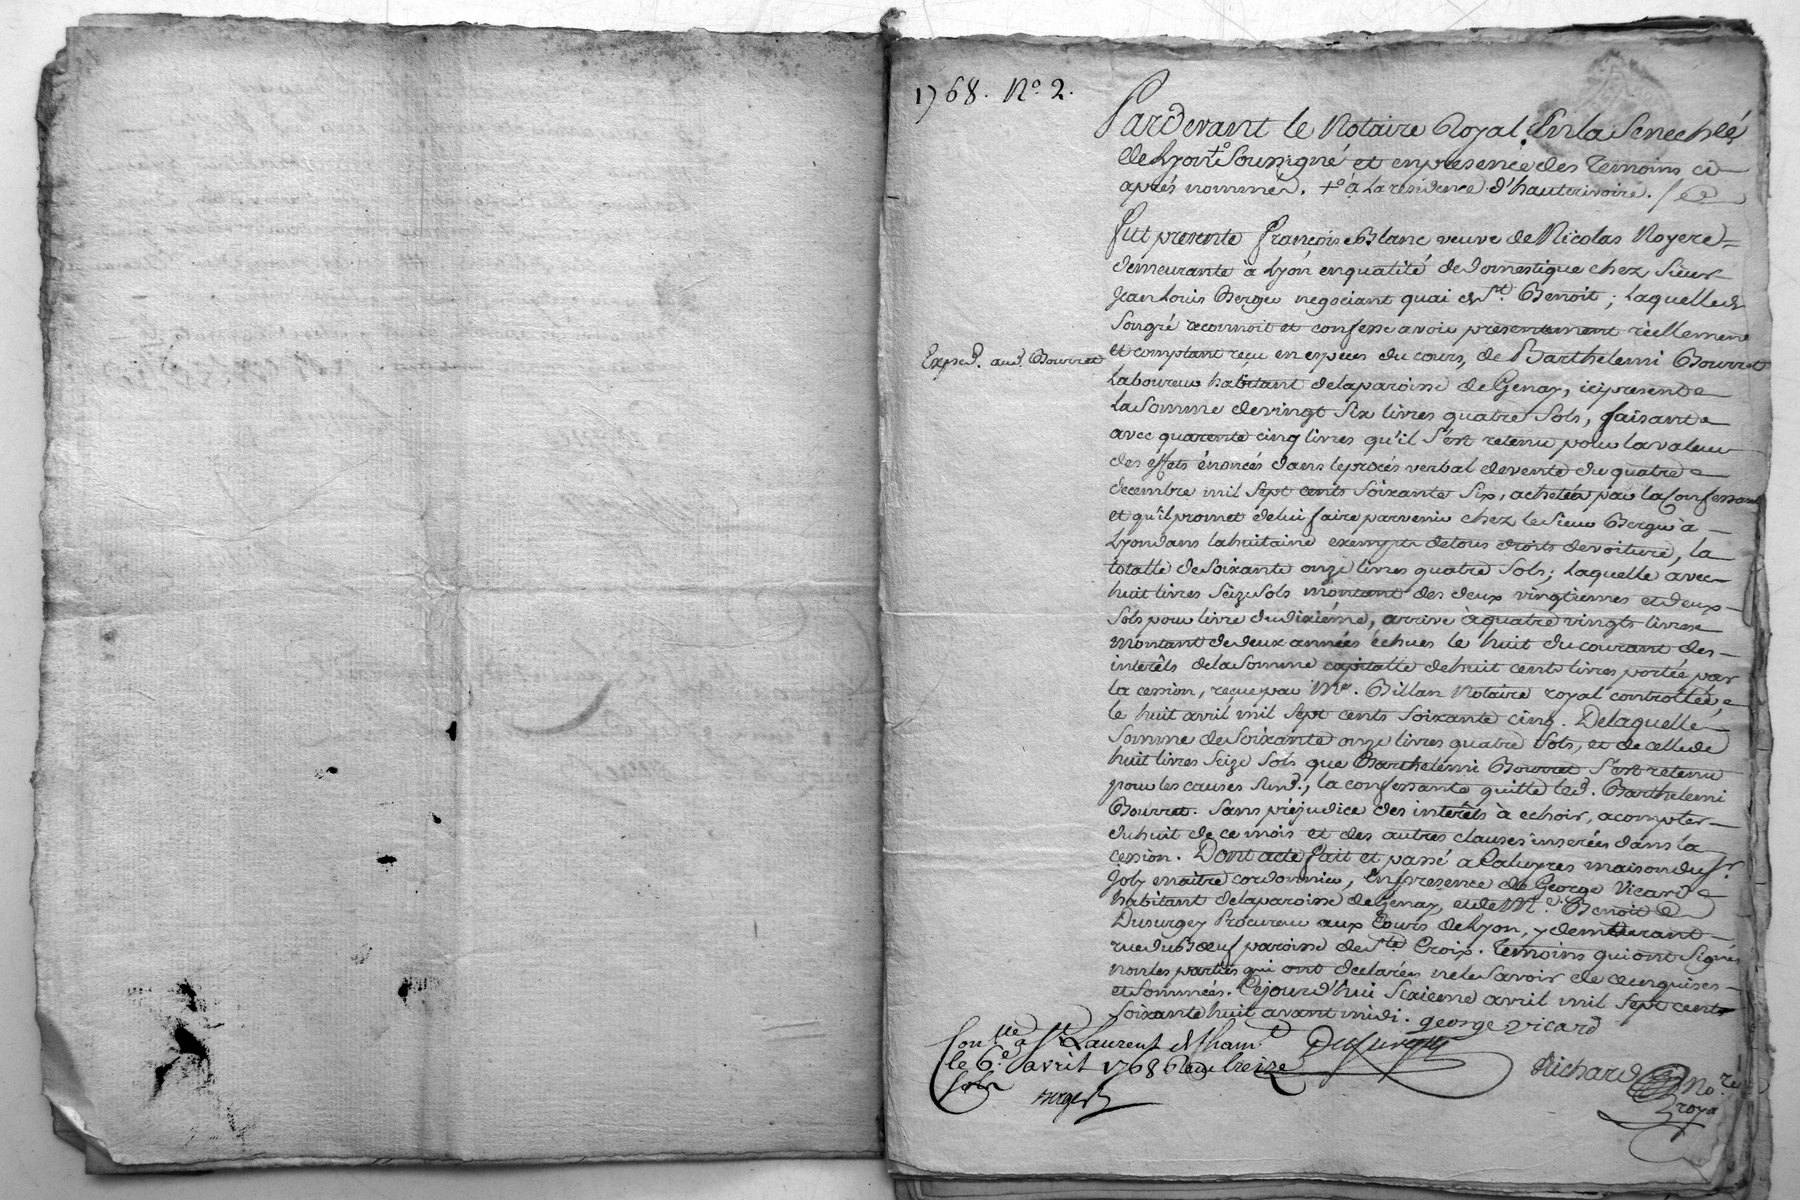 1768. N.º 2.
Pardevant le Notaire Royal En la Senechée
de Lyon +º Soussigné et en presence des temoins ci-
aprés nommés. +º à la residence d'hauterivoire.
Fut presente Françoise Blanc veuve de Nicolas Noyere =
demeurante à Lyon en qualité de domestique chez Sieur
Jean Louis Bergeu negociant quai de St. Benoit ; laquelle de
son gré reconnoit et confesse avoir presentement réellement
et comptant reçu en especes du cours, de Barthelemi Bourrat
Exped. aud. Bourrat
Laboureur habitant de la paroisse de Genay, ici present
la Somme de vingt Six livres quatre Sols, faisant
avec quarente cinq livres qu'il S'est retenu pour la valeur
des effets énoncés dans le procés verbal de vente du quatre
decembre mil Sept cents Soixante Six, achetés par la Confessante
et qu'il promet de lui faire parvenir chez le Sieur Bergeu à
Lyon dans la huitaine exempts de tous droits de voiture, la
totalle de Soixante onze livres quatre Sols ; laquelle avec
huit livres Seize Sols montant des deux vingtiemes et deux
Sols pour livre du dixiéme, arrive à quatre vingts livres
montant de deux années échues le huit du courant des
interêts de la Somme capitalle de huit cents livres portée par
la cession, reçue par Me. Billan Notaire royal controllée,
le huit avril mil Sept cents Soixante cinq. De laquelle
Somme de Soixante onze livres quatre Sols, et de celle de
huit livres Seize Sols que Barthelemi Bourrat S'est retenu
pour les causes Susd., la confessante quitte led. Barthelemi
Bourrat. Sans préjudice des interêts à echoir, a compter
du huit de ce mois et des autres clauses inserées dans la
cession. Dont acte fait et passé a maison du Sr.
Joly maitre cordonnier, En presence de George Vicard
habitant de la paroisse de Genay, et de Me. Benoit
Dusurgey Procureur aux Cours de Lyon, y demeurant
rue du Boeuf paroisse de Ste Croix. temoins qui ont Signé
non les parties qui ont declarées ne le Savoir de ce enquises
et sommées. Cejourd'hui Sixieme avril mil Sept cents
Soixante huit avant midi. george vicard
Con.lle a St Laurent de Cham.t Dusurgey
le 6.e avril 1768 Reçu treize
Sols
Berger
Richard No.re
royal